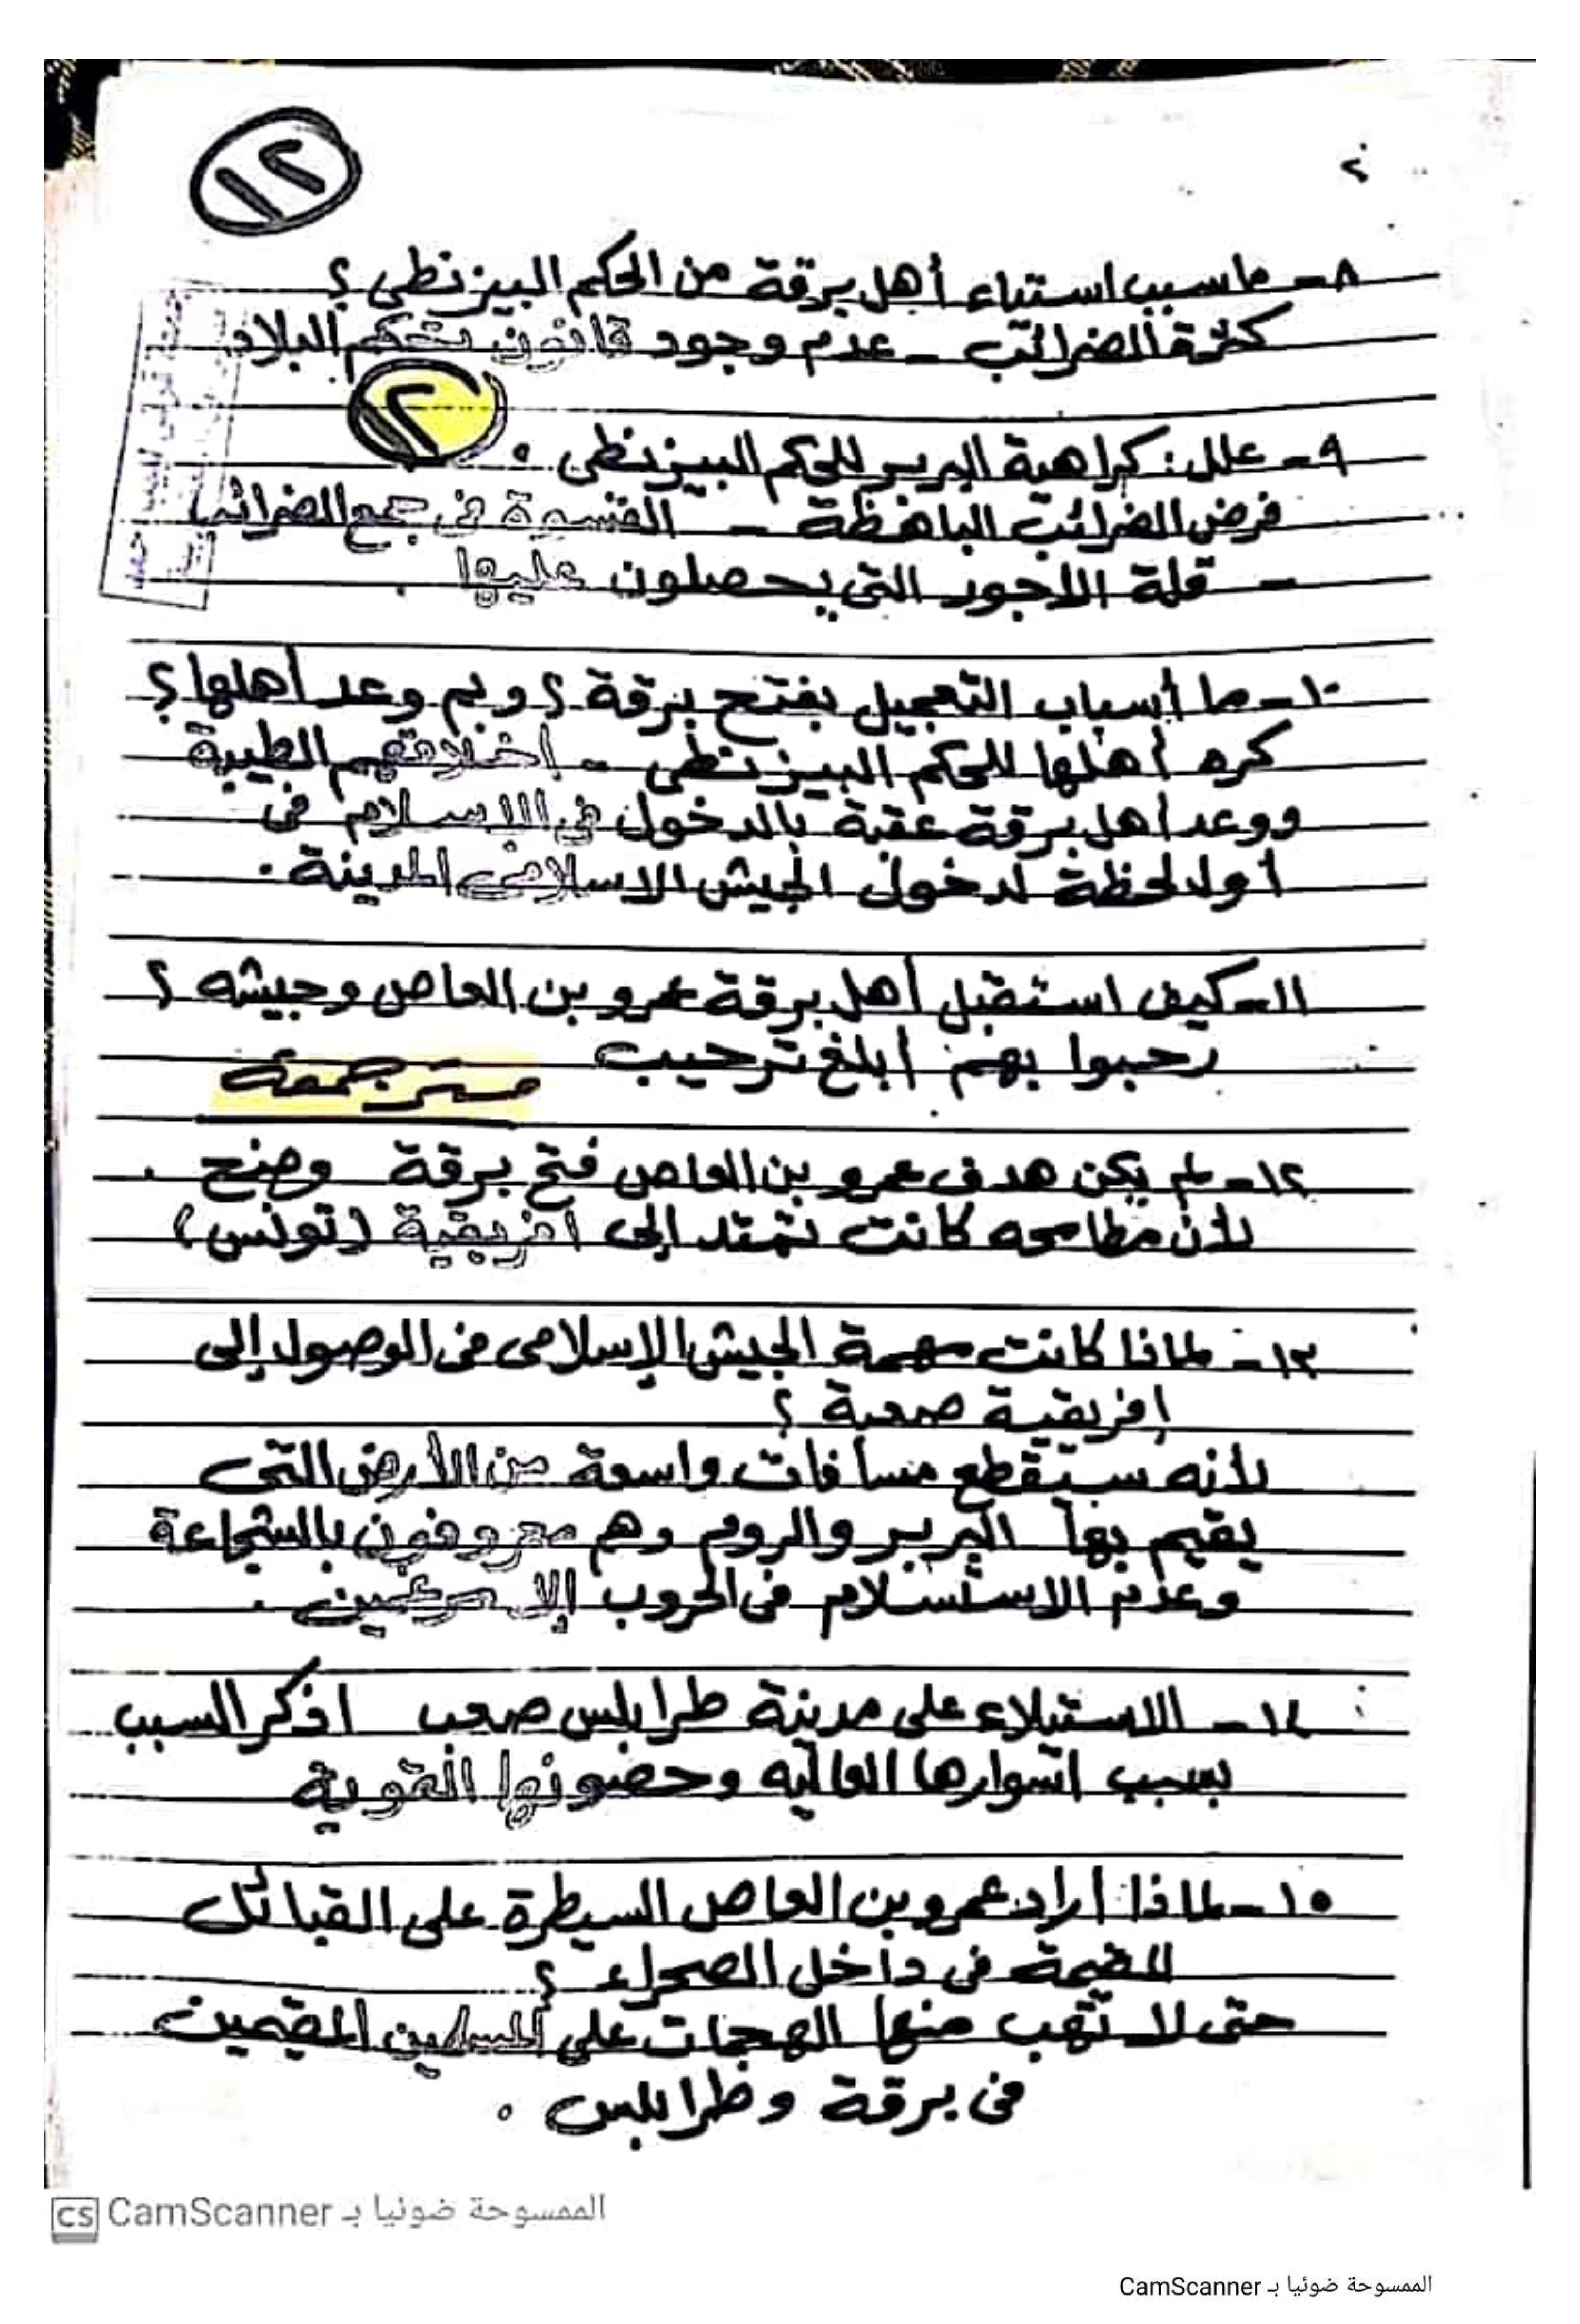 ١٢
٢
٨- ما سبب استياء أهل برقة من الحكم البيزنطى ؟
كثرة الضرائب - عدم وجود قانون يحكم البلاد
٢
٩- علل : كراهية البربر للحكم البيزنطى .
فرض الضرائب الباهظة - القسوة فى جمع الضرائب
- قلة الأجور التى يحصلون عليها .
١٠- ما أسباب التعجيل بفتح برقة ؟ وبم وعد أهلها ؟
كره أهلها للحكم البيزنطى - أخلاقهم الطيبة
ووعد أهل برقة عقبة بالدخول فى الاسلام فى
أول لحظة لدخول الجيش الاسلامى المدينة .
١١- كيف استقبل أهل برقة عمرو بن العاص وجيشه ؟
رحبوا بهم أبلغ ترحيب
١٢- لم يكن هدف عمرو بن العاص فتح برقة وضح .
لأن مطامحه كانت تمتد إلى أفريقية (تونس)
١٣- لماذا كانت مهمة الجيش الإسلامى فى الوصول إلى
إفريقية صعبة ؟
لأنه سيقطع مسافات واسعة من الأرض التى
يقيم بها البربر والروم وهم معروفون بالشجاعة
وعدم الاستسلام فى الحروب إلا مرغمين .
١٤- الاستيلاء على مدينة طرابلس صعب اذكر السبب
بسبب أسوارها العاليه وحصونها القوية
١٥- لماذا أراد عمرو بن العاص السيطرة على القبائل
المقيمة فى داخل الصحراء ؟
حتى لا تهب منها الهجمات على المسلمين المقيمين
فى برقة وطرابلس .
الممسوحة ضوئيا بـ CamScanner
الممسوحة ضوئيا بـ CamScanner